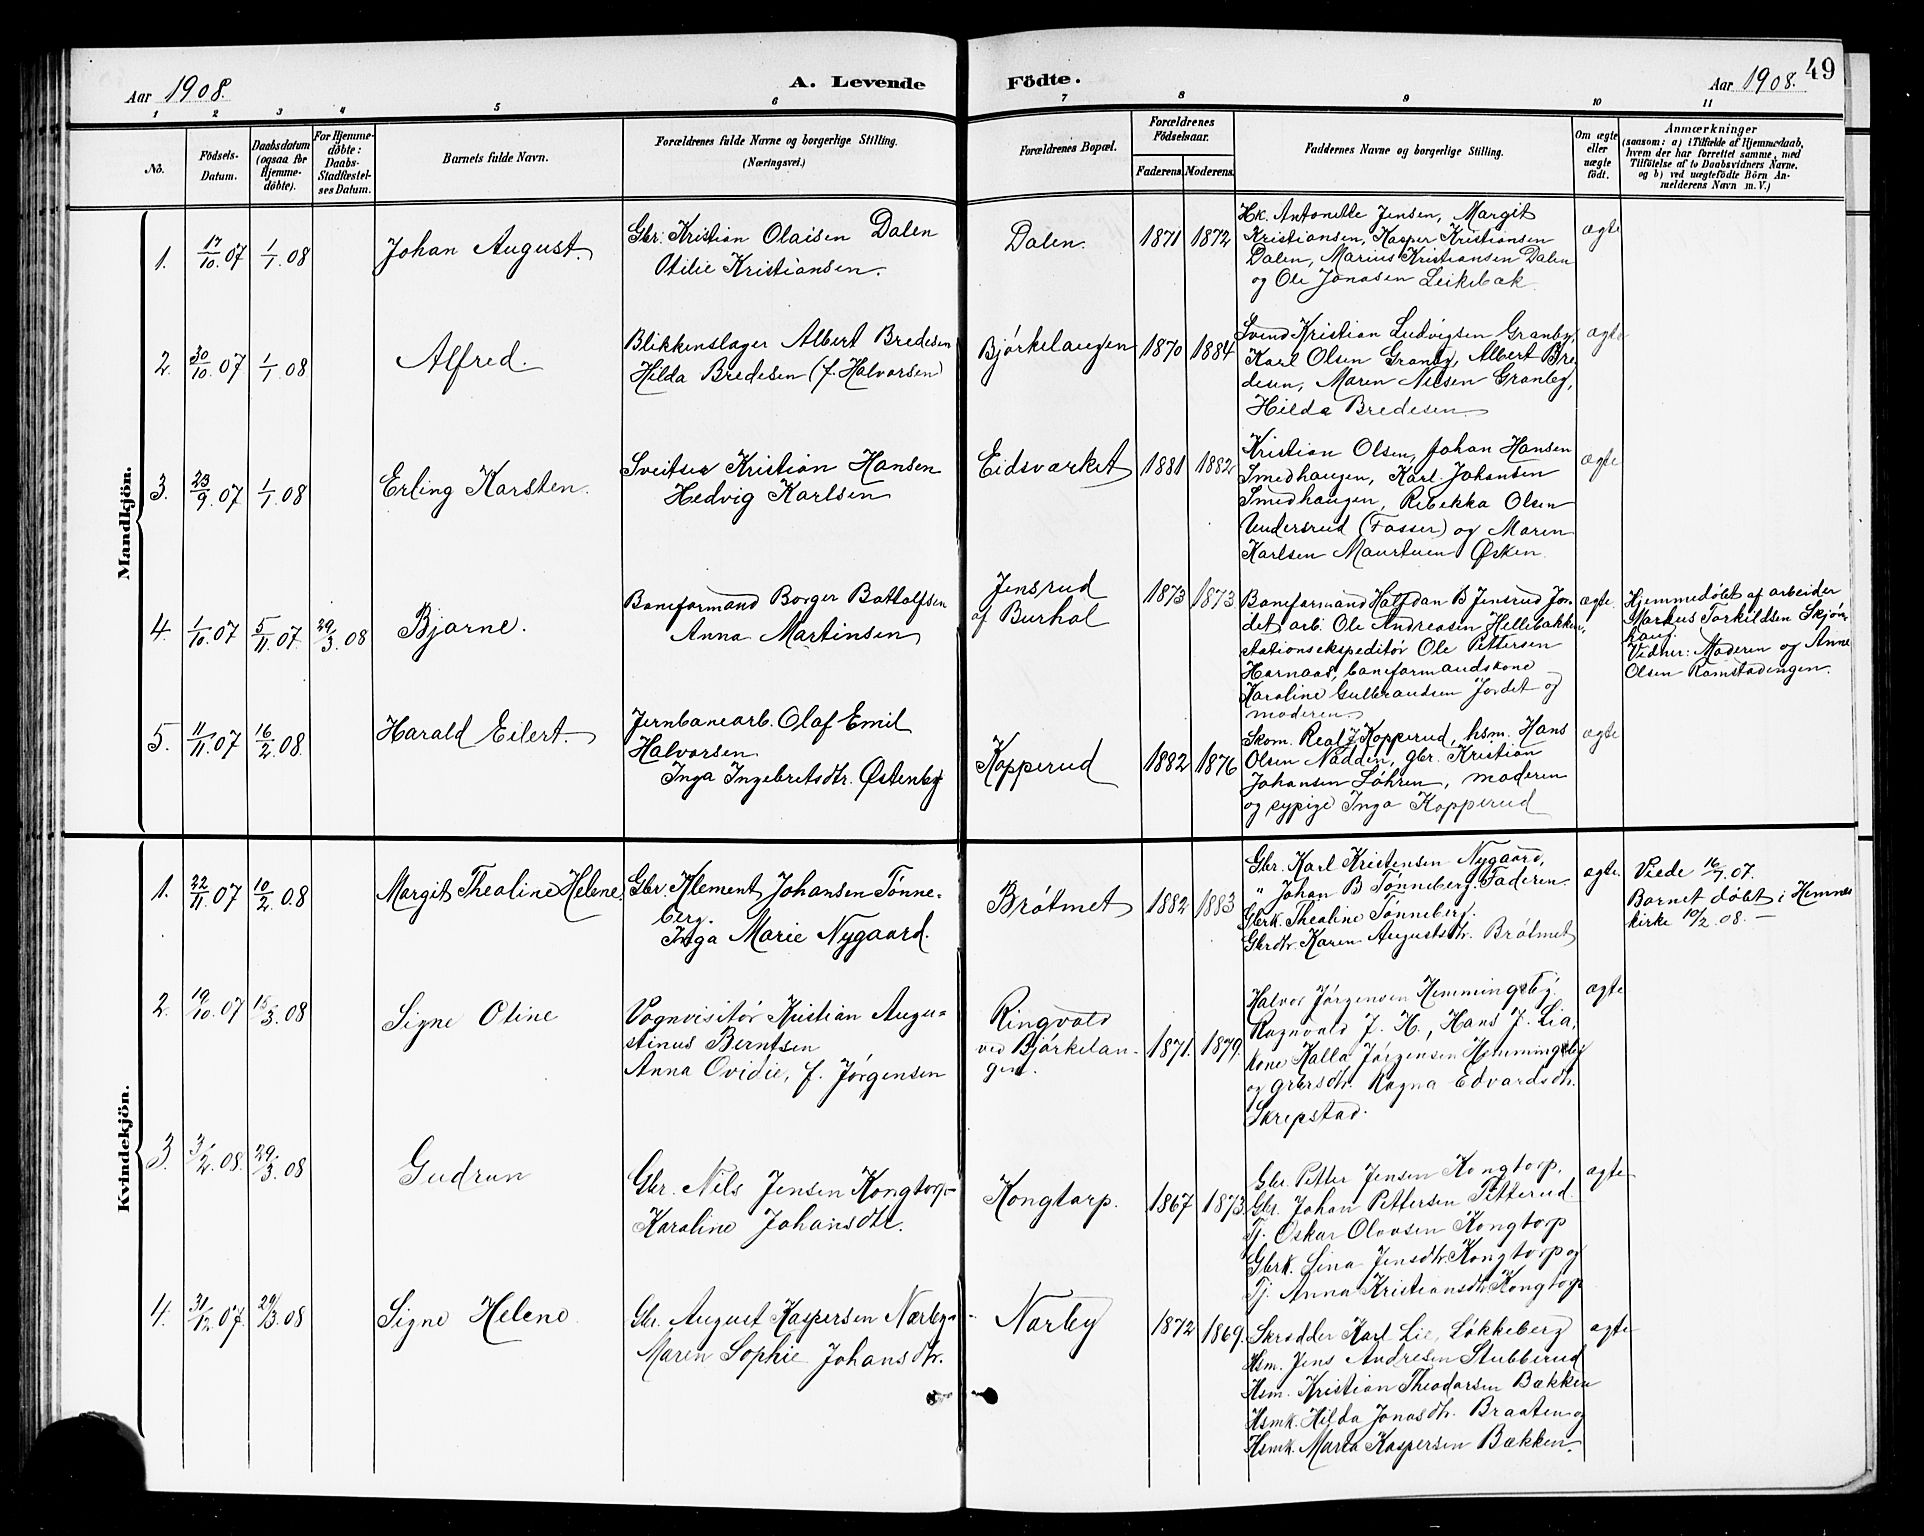 49
Aar 1908.
A. Levende
Födte.
Aar 1908.
1 2 3 4 5 6 7 8 9 10 11
No.
Födsels-
Datum.
Daabsdatum
(ogsaa for
Hjemme-
döbte).
For Hjemme-
döbte:
Daabs-
Stadfæstel-
ses Datum.
Barnets fulde Navn.
Forældrenes fulde Navne og borgerlige Stilling.
(Næringsvei.)
Forældrenes Bopæl.
Forældrenes
Födselsaar.
Faderens. Moderens.
Faddernes Navne og borgerlige Stilling.
Om ægte
eller
uægte
født.
Anmærkninger
(saasom: a) i Tilfælde af Hjemmedaab,
hvem der har forrettet samme, med
Tilföielse af to Daabsvidners Navne.
og b) ved uægtefödte Börn An-
melderens Navn m. V.)
Mandkjön.
1. 17/10 07 1/1 08
Johan August.
Gbr. Kristian Olaisen Dalen
Otilie Kristiansen.
Dalen. 1871 1872
Hk. Antonette Jensen, Margit
Kristiansen, Kasper Kristiansen
Dalen, Marius Kristiansen Dalen
og Ole Jonasen Leikebæk.
ægte
2. 30/10 07 1/1 08
Alfred.
Blikkenslager Albert Bredesen
Hilda Bredesen (f. Halvorsen)
Bjørkelangen 1870 1884
Svend Kristian Ludvigsen Granby,
Karl Olsen Granby, Albert Bre
desen, Maren Nilsen Granby,
Hilda Bredesen
ægte
3. 23/9 07 1/1 08
Erling Karsten.
Sveitser Kristian Hansen
Hedvig Karlsen
Eidsværket 1881 1882
Kristian Olsen, Johan Hansen
Smedhaugen, Karl Johansen
Smedhaugen, Rebekka Olsen
Undersrud (Fosser) og Maren
Karlsen Maurtuen Øsken
ægte
4. 1/10 07 5/11 07 29/3 08
Bjarne.
Baneformand Borger Bottolfsen
Anna Martinsen
Jensrud
af Burhol
1873 1873
Baneformand Halfdan B Jensrud Jor
det, arb. Ole Andreasen Hellebakken,
stationsekspeditør Ole Pettersen
Hornaas, baneformandskone
Karoline Gulbrandsen Jordet og
moderen
ægte.
Hjemmedøbt af arbeider
Markus Torkildsen Skjøn
haug.
Vidner: Moderen og Anne
Olsen Ramstadengen.
5. 11/11 07 16/2 08.
Harald Eilert.
Jernbanearb. Olaf Emil
Halvorsen
Inga Ingebretsdtr. Østenby
Kopperud 1882 1876
Skom. Real J Kopperud, hsm. Hans
Olsen Nadden, gbr. Kristian
Johansen Løhren, moderen
og sypige Inga Kopperud
ægte
Kvindekjön.
1. 22/11 07 10/2 08
Margit Thealine Helene.
Gbr. Klement Johansen Tønne-
berg.
Inga Marie Nygaard.
Brøtmet 1882 1883
Gbr. Karl Kristensen Nygaard,
" Johan B Tønneberg. Faderen.
Gbrk. Thealine Tønneberg.
Gbrdtr. Karen Augustsdtr. Brøtmet
ægte.
Viede 16/7 07.
Barnet døbt i Hemnes
kirke 10/2 08. —
2. 19/10 07 15/3 08
Signe Otine
Vognvisitør Kristian Augu-
stinus Berntsen
Anna Ovidie, f. Jørgensen
Ringvold
ved Bjørkelan-
gen.
1871. 1879.
Halvor Jørgensen Hemmingsby,
Ragnvald J. H., Hans J. Lia,
kone Kalla Jørgensen Hemmingsby
og grbrsdtr. Ragna Edvardsdtr.
Skrepstad.
ægte
3. 3/2 08. 29/3 08
Gudrun
Gbr. Nils Jensen Kongtorp-
Karoline Johansdtr.
Kongtorp. 1867 1873.
Gbr. Petter Jensen Kongtorp.
Gbr. Johan Pettersen Petterud
Tj. Oskar Olavsen Kongtorp
Gbrk. Lina Jensdtr. Kongtorp og
Tj. Anna Kristiansdtr. Kongtorp
ægte
4. 31/12 07. 29/3 08
Signe Helene
Gbr. August Kaspersen Nærby-
Maren Sophie Johansdtr.
Nærby 1872 1869.
Skrædder Karl Lie, Løkkeberg
Hsm. Jens Andresen Stubberud
Hsm. Kristian Theodorsen Bækken
Hsmk. Hilda Jonasdtr. Braaten og
Hsmk. Marta Kaspersen Bækken.
ægte